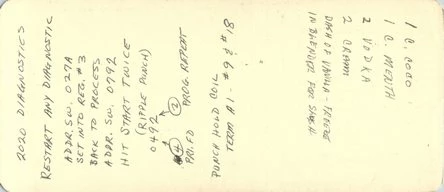 2020 DIAGNOSTICS
RESTART ANY DIAGNOSTIC
ADDR. SW. 027A
SET INTO REG. #3
BACK TO PROCESS
ADDR. SW. 0792
HIT START TWICE
(RIPPLE PUNCH)
0492
4 2
PRI. FD PROG. REPEAT
PUNCH HOLD COIL
TERM A1 - #9 & #18
1 C. COCO
1 C. MENTH
2 VODKA
2 CREAM
DASH OF VANILLA - FREEZE
IN BLENDER FOR SLUSH